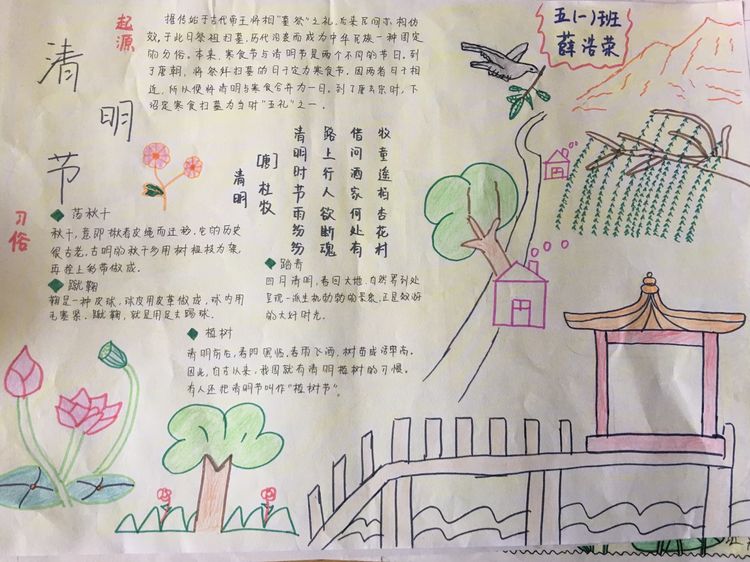 清明节
起源
据传始于古代帝王将相"墓祭"之礼,后来民间亦相仿
效,于此日祭祖扫墓,历代沿袭而成为中华民族一种固定
的风俗。本来,寒食节与清明节是两个不同的节日。到
了唐朝,将祭拜扫墓的日子定为寒食节。因两者日子相
近,所以便将清明与寒食合并为一日。到了唐玄宗时,下
诏定寒食扫墓为当时"五礼"之一.
五(一)班
薛浩荣
清明
[唐] 杜牧
清明时节雨纷纷
路上行人欲断魂
借问酒家何处有
牧童遥指杏花村
习俗
荡秋千
秋千,意即揪着皮绳而迁移。它的历史
很古老,古明的秋千多用树桠枝为架,
再拴上彩带做成。
蹴鞠
鞠是一种皮球,球皮用皮革做成,球内用
毛塞紧。蹴鞠,就是用足去踢球.
踏青
四月清明,春回大地,自然界到处
呈现一派生机勃勃的景象,正是郊游
的大好时光。
植树
清明前后,春阳照临,春雨飞洒,树苗成活率高。
因此,自古以来,我国就有清明植树的习惯。
有人还把清明节叫作"植树节"。